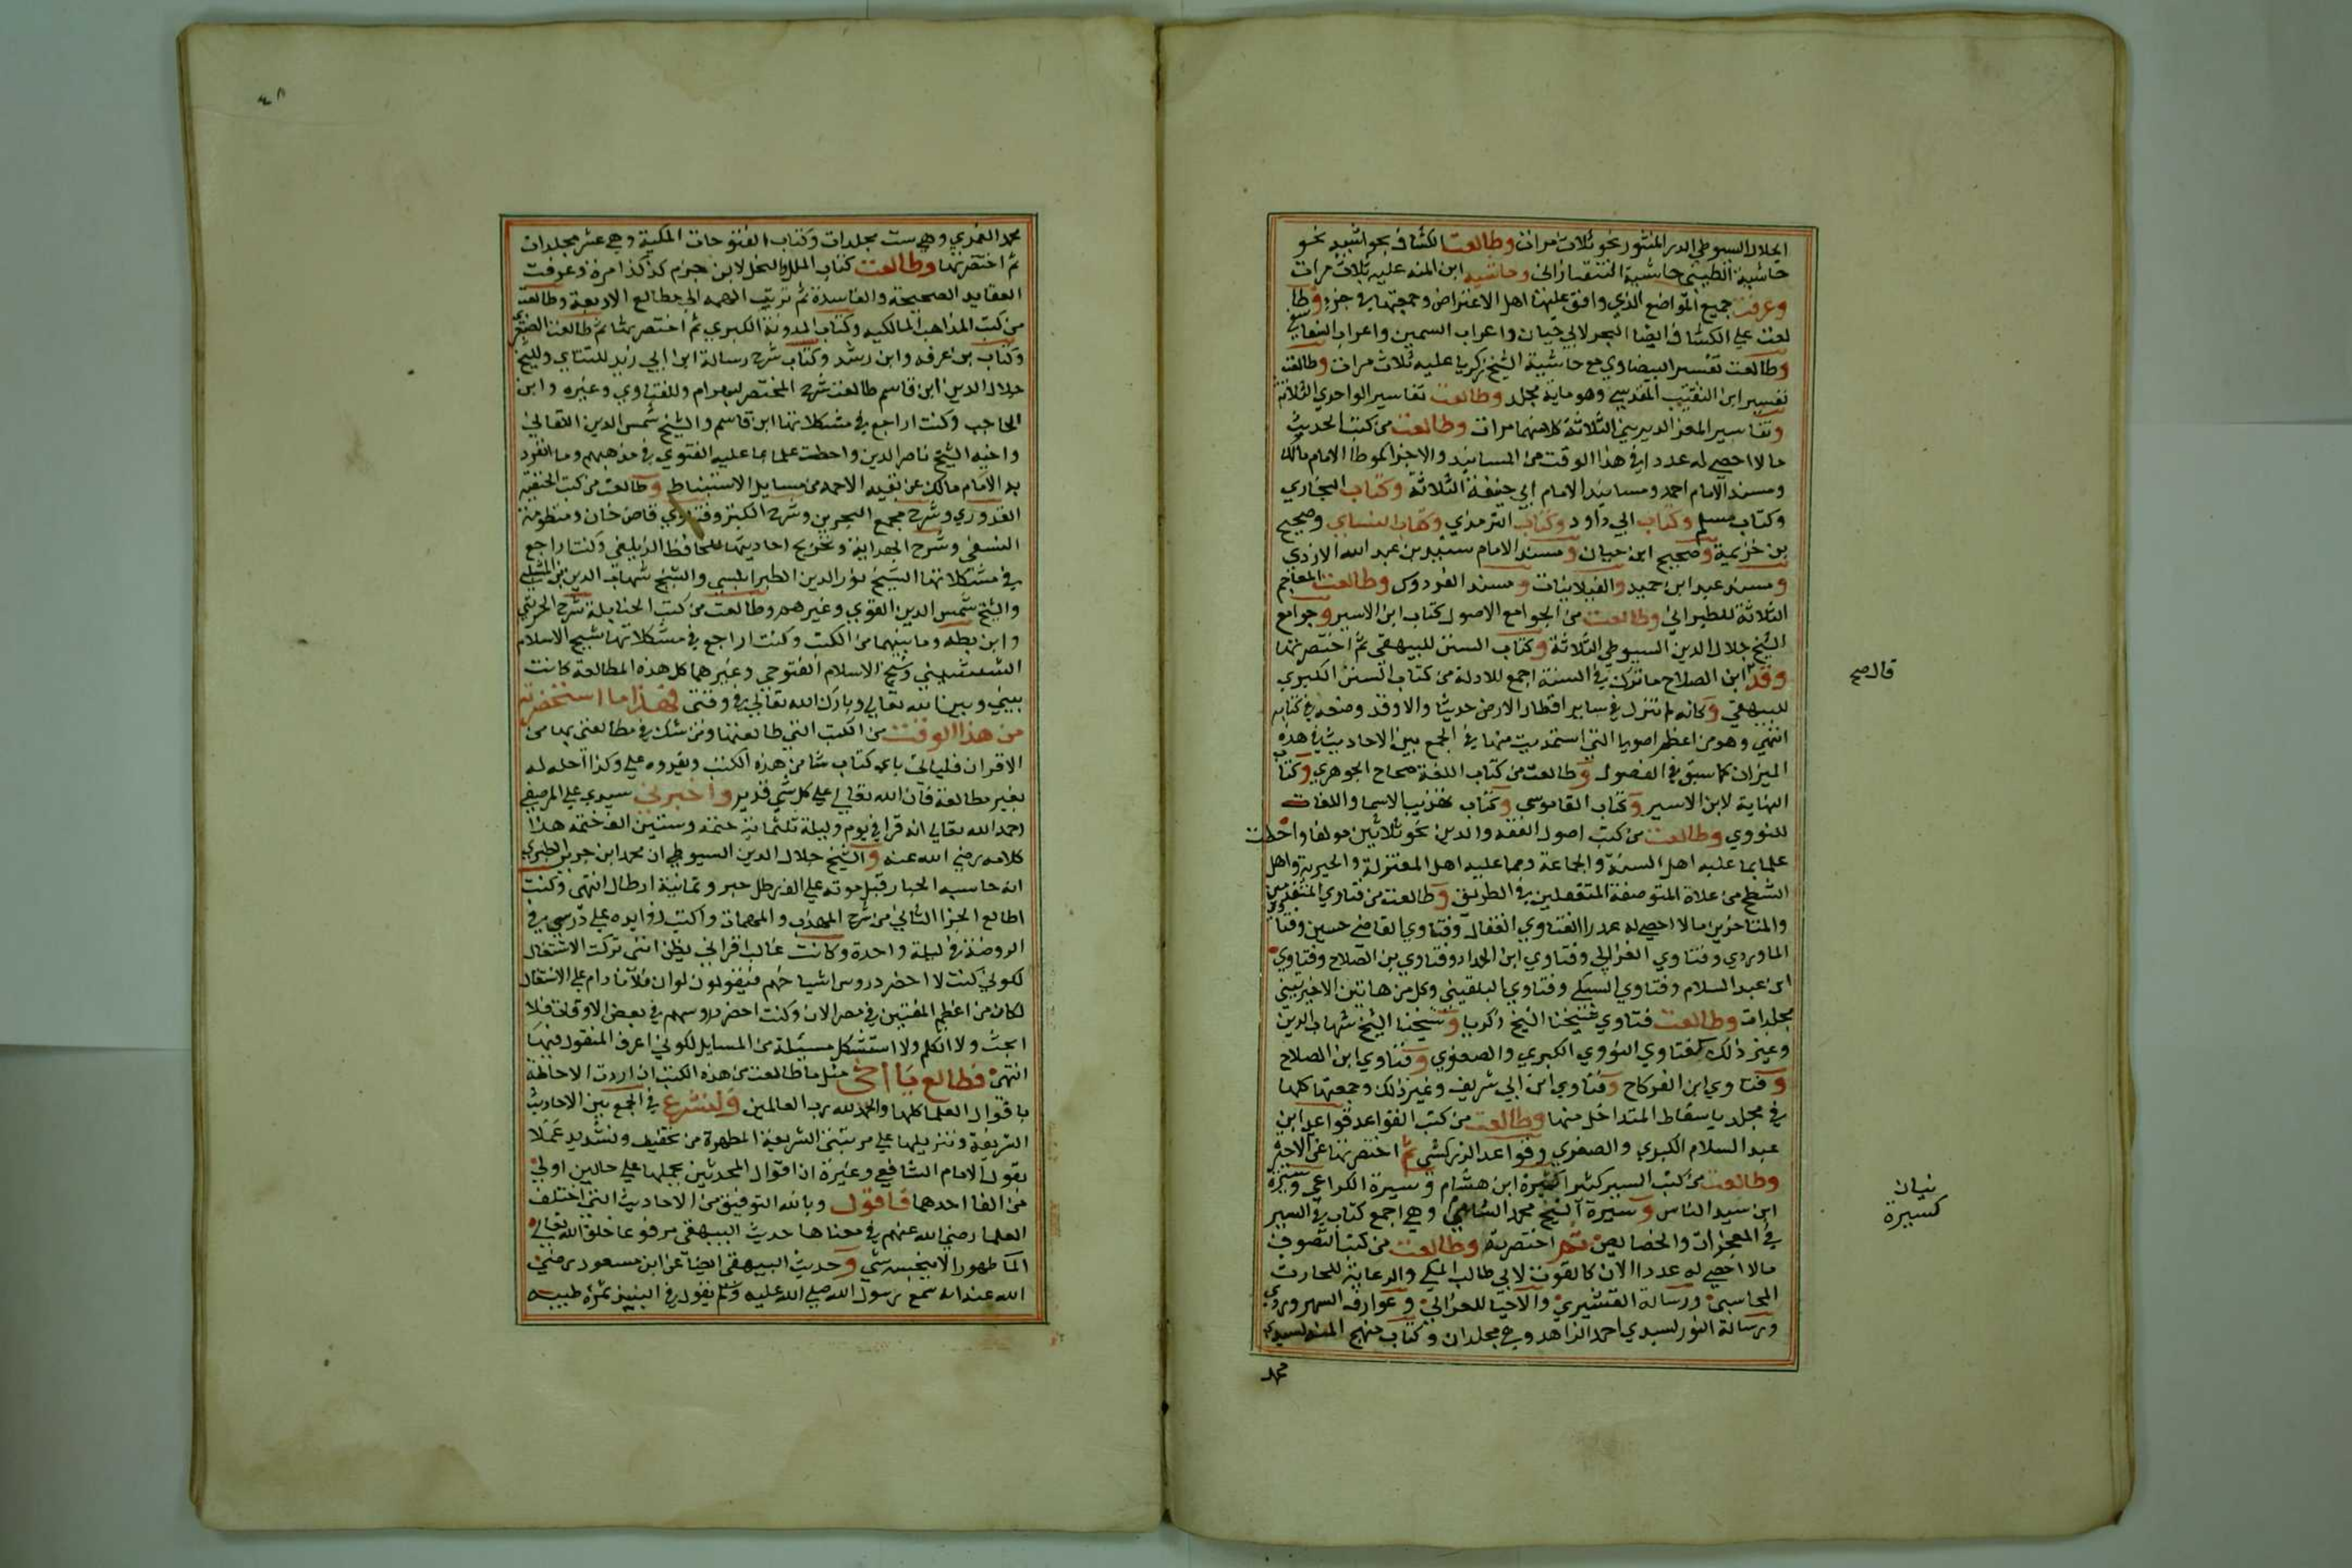 الجلال السيوطي الدر المنثور نحو ثلاث مرات وطالعت الكشاف بحواشيه نحو
حاشية الطيبي حاشية التفتازاني وحاشية ابن المنير عليه ثلاث مرات
وعرفت جميع المواضع الذي وافق عليها اهل الاعتزال وجمعتها في جزء وطا
لعت علي الكشاف ايضا البحر لابي حيان واعراب السمين واعراب السفاقسي
وطالعت تفسير البيضاوي مع حاشية الشيخ زكريا عليه ثلاث مرات وطالعت
تفسير ابن النقيب المقدسي وهو ماية مجلد وطالعت تفاسير الواحدي الثلاثة
وتفاسير العز الديريني الثلاثة كلا منهما مرات وطالعت من كتب الحديث
ما لا احصي له عددا في هذا الوقت من المسانيد والاجزا كموطا الامام مالك
ومسند الامام احمد ومسانيد الامام ابي حنيفة الثلاثة وكتاب البخاري
وكتاب مسلم وكتاب ابي داود وكتاب الترمذي وكتاب النساي وصحيح
بن خزيمة وصحيح ابن حبان ومسند الامام سنيد بن عبد الله الازدي
ومسند عبد ابن حميد والغيلانيات ومسند الفردوس وطالعت المعاجم
الثلاثة للطبراني وطالعت من الجوامع الاصول كتاب ابن الاسير وجوامع
الشيخ جلال الدين السيوطي الثلاثة وكتاب السنن للبيهقي ثم اختصرتها
وقد ابن الصلاح ما نزل في السنة اجمع للادلة من كتاب السنن الكبري
للبيهقي وكانه لم تنزل في ساير اقطار الارض حديثا والا وقد وضعه في كتابه
انتهي وهو من اعظم اصوليا التي استمديت منها في الجمع بين الاحاديث في هذه
الميزان كما سبق في الفصول وطالعت من كتاب اللغة صحاح الجوهري وكتا
النهاية لابن الاسير وكتاب القاموس وكتاب تهذيب الاسما واللغات
للنووي وطالعت من كتب اصول الفقه والدين نحو ثلاثين مولفا واحطت
علما بما عليه اهل السنة والجماعة ومما عليه اهل المعتزلة والجبرية واهل
الشطح من غلاة المتوصفة المتفعلين في الطريق وطالعت من فتاوي المتقدمين
والمتاخرين ما لا احصي له عددا الفتاوي القفال وفتاوي القاضي حسين وفتا
الماوردي وفتاوي الغزالي وفتاوي ابن الحداد وفتاوي بن الصلاح وفتاوي
ابن عبد السلام وفتاوي السبكي وفتاوي البلقيني وكل من هاتين الاخيرتين
مجلدات وطالعت فتاوي شيخنا الشيخ زكريا وشيخنا الشيخ شهاب الدين
وغير ذلك كفتاوي النووي الكبري والصغري وفتاوي ابن الصلاح
وفتاوي ابن الفركاح وفتاوي ابن ابي شريف وغير ذلك وجمعتها كلها
في مجلد باسقاط المتداخل منها وطالعت من كتب القواعد قواعد ابن
عبد السلام الكبري والصغري وقواعد الزركشي ثم اختصرتها عن الاخر
وطالعت من كتب السير كثيرا كسيرة ابن هشام وسيرة الكلاعي وسيرة
ابن سيد الناس وسيرة الشيخ محمد الشامي وهي اجمع كتاب في السير
في المعجزات والخصايص ثم اختصرته وطالعت من كتب التصوف
مالا احصي له عددا الان كالقوت لابي طالب المكي والرعاية للحارث
المحاسبي ورسالة القشيري والاحيا للغزالي وعوارف السهروردي
ورسالة النور لسيدي احمد الزاهد وهي مجلدان وكتاب منهج المنه لسيدي
محمد
قال صح
بيان
كسيرة
٤٨
محمد الغمري وهي ست مجلدات وكتاب الفتوحات المكية وهي عشر مجلدات
ثم اختصرتها وطالعت كتاب الملل والنحل لابن حزم كذ كذا مرة وعرفت
العقايد الصحيحة والفاسدة ثم ترقت الهمه الي مطالع الاربعة وطالعت
من كتب المذاهب المالكيه وكتاب المدونة الكبري ثم اختصرتها ثم طالعت الصغري
وكتاب بن عرفه وابن رشد وكتاب شرح رسالة ابن ابي زيد للتتاي وللشيخ
جلال الدين ابن قاسم طالعت شرح المختصر لبهرام وللفتاوي وغيره وابن
الحاجب وكنت اراجع في مشكلاتها ابن قاسم والشيخ شمس الدين اللقاني
واخيه الشيخ ناصر الدين واحطت علما بما عليه الفتوي في مذهبهم وما انفرد
به الامام مالك عن بقيه الايمه من مسايل الاستنباط وطالعت من كتب الحنفيه
القدوري وشرح مجمع البحرين وشرح الكنز وفتاوي قاض خان ومنظومة
النسفي وشرح الهداية وتخريج احاديثها للحافظ الزيلعي وكنت اراجع
في مشكلاتها الشيخ نور الدين الطرابلسي والشيخ شهاب الدين بن الشلبي
والشيخ شمس الدين الغزي وغيرهم وطالعت من كتب الحنابلة شرح الخرقي
وابن بطه وما بينهما من الكتب وكنت اراجع في مشكلاتها شيخ الاسلام
الششتيني وشيخ الاسلام الفتوحي وغيرهما كل هذه المطالعة كانت
بيني وبين الله تعالي وبارك الله تعالي في وقتي فهذا ما استحضرته
من هذا الوقت من الكتب التي طالعتها ومن شك في مطالعتي لها من
الاقران فلياتي باي كتاب شا من هذه الكتب ويقروه علي وكذا احله له
بغير مطالعة فان الله تعالي علي كل شي قدير واخبرني سيدي علي المرصفي
رحمه الله تعالي انه قرا في يوم وليلة ثلثماية ختمة وستين الف ختمة هذا
كلامه رضي الله عنه والشيخ جلال الدين السيوطي ان محمد ابن جرير الطبري
انه حاسبه الحبار قبل موته علي الف رطل حبر وثمانية ارطال انتهى وكنت
اطالع الجزا الثاني من شرح المهذب والمهمات واكتب زوايده علي درسي في
الروضة في ليلة واحدة وكانت غالب اقراني يظن انني تركت الاشتغال
لكوني كنت لا احضر دروس اشياخهم فيقولون لوان فلانا دام علي الاشتغال
لكان من اعظم المفتيين في مصر الان وكنت احضر دروسهم في بعض الاوقات فلا
ابحث ولا اتكلم ولا استشكل مسئلة من المسايل لكوني اعرف المنقول فيها
انتهى فطالع يا اخي مثل ما طالعت من هذه الكتب ان اردت الاحاطة
باقوال العلما كلها والحمد لله رب العالمين ولنشرع في الجمع بين الاحاديث
الشريفة وتنزيلها علي مرتبتي الشريعة المطهرة من تخفيف وتشديد عملا
بقول الامام الشافعي وغيره ان اقوال المحدثين بحملها علي حالين اولى
من الغا احدهما فاقول وبالله التوفيق من الاحاديث التي اختلف
العلما رضي الله عنهم في معناها حديث البيهقي مرفوعا خلق الله تعالي
الما طهورا لا ينجسه شي وحديث البيهقي ايضا عن ابن مسعود رضي
الله عنه انه سمع رسول الله صلي الله عليه وسلم يقول في النبيذ تمرة طيبه